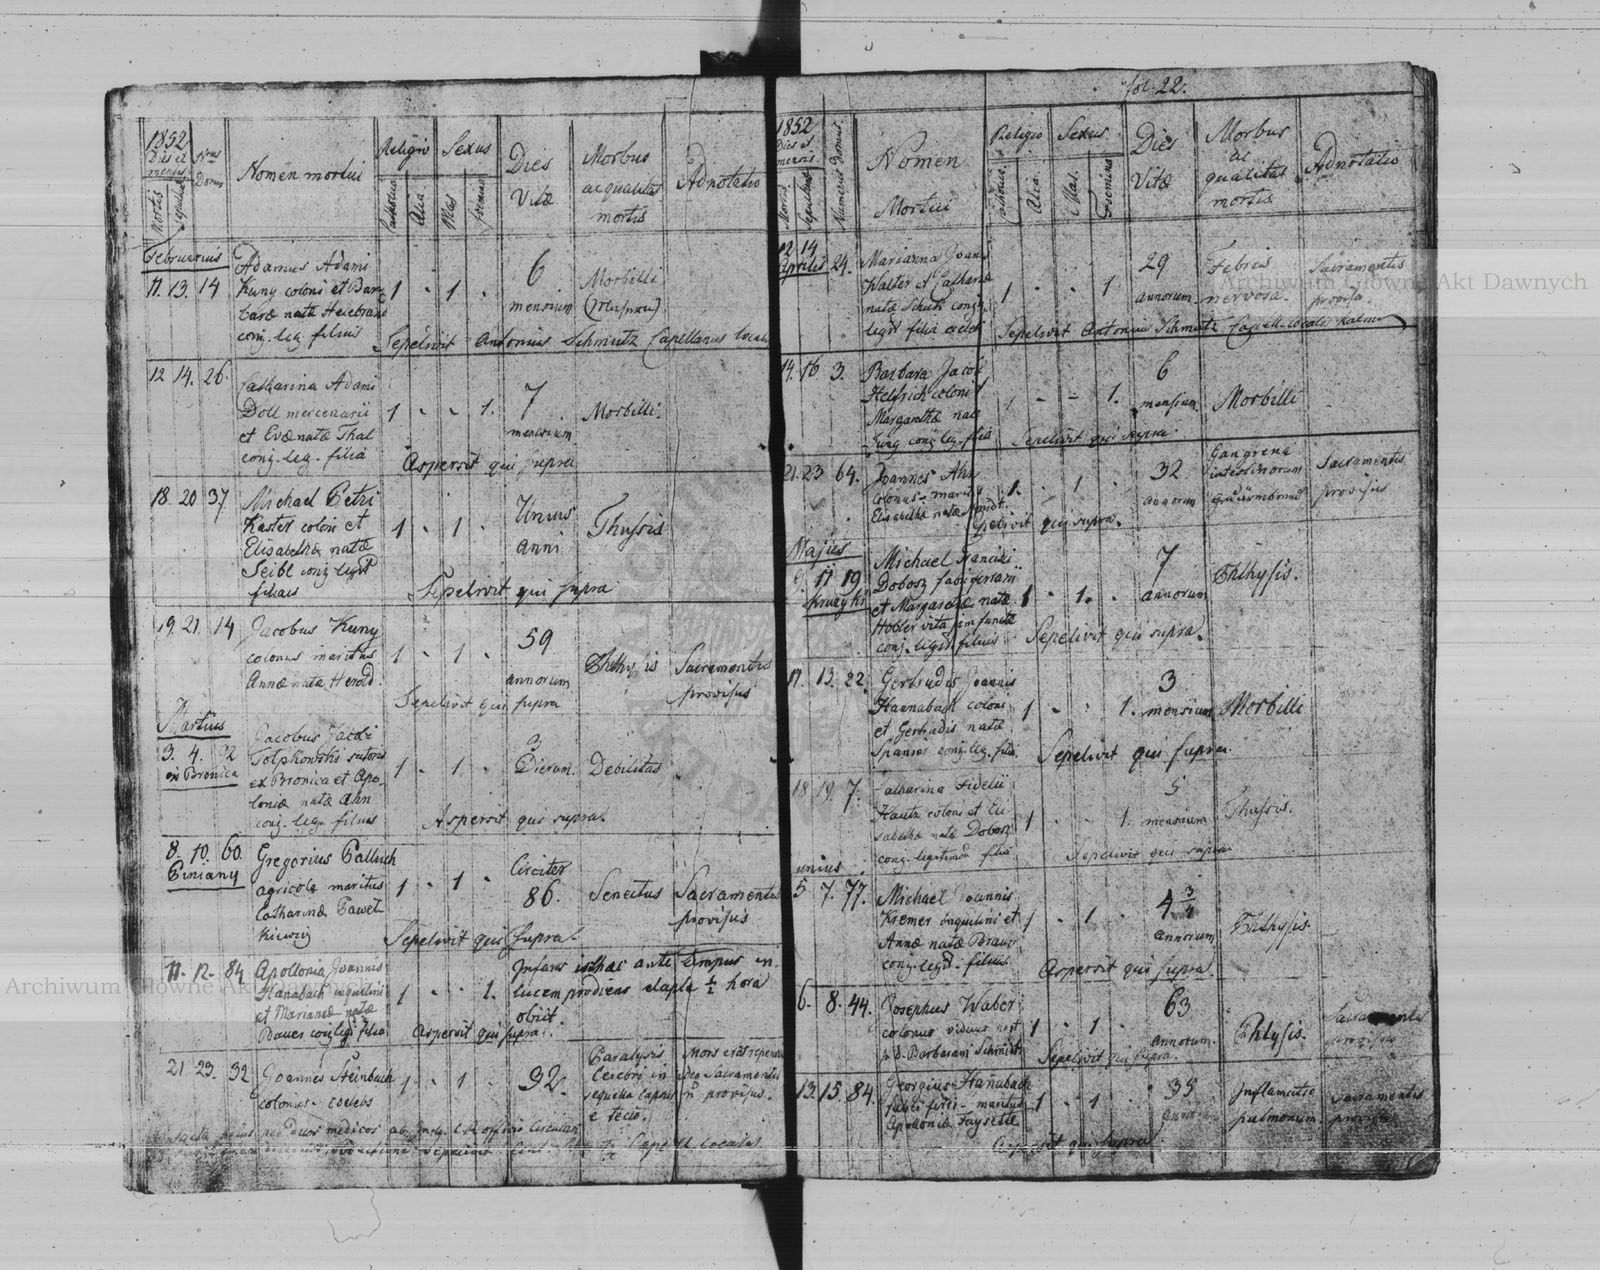 1852
Dies et mensis
Mortis
Sepulturae
Nrus Domus
Nomen mortui
Religio
Catholica
Alia
Sexus
Mas
Foemin
Dies Vitæ
Morbus ac qualitas mortis
Adnotatio
Februarius
11. 13. 14
Adamus Adami
Kuny coloni et Bar
baræ natæ Heiebrand
conj. leg. filius
1 - 1 -
6
mensium
Morbilli
Sepelivit Antonius Schmutz Capellanus local
12 14. 26.
Catharina Adami
Doll mercenarii
et Evæ natæ Thal
conj. leg. filia
1 - - 1.
7
mensium
Morbilli.
Aspersit qui supra
18. 20 37
Michael Petri
Kaster coloni et
Elisabethæ natæ
Seibl conj. legit
filius
1 - 1 -
Unius
Anni
Thysis
Sepelivit qui supra
19. 21. 14
Jacobus Kuny
colonus maritus
Annæ natæ Herold.
1 - 1 -
59
annorum
Phthysis
Sacramentis
provisus
Sepelivit qui supra
Martius
3. 4. 92
in Bronica
Jacobus Jacobi
Golphowski sutoris
ex Bronica et Apo
loniæ natæ Ahn
conj. leg. filius
1 - 1 -
3
Dierum.
Debilitas
Aspersit qui supra.
8. 10. 60.
Piniany
Gregorius Palluch
agricola maritus
Catharinæ Pawel
kiewicz
1 - 1 -
Circiter
86.
Senectus
Sacramentis
provisus
Sepelivit qui supra.
11. 12. 84
Apollonia Joannis
Hanabach inquilini
et Mariannæ natæ
Bauer conj. leg. filia
1 - - 1.
Infans isthæc ante tempus in
lucem prodiens elapsa ½ hora
obiit.
Aspersit qui supra.
21. 23. 32
Joannes Steinbach
colonus - coelebs
1 - 1 -
32.
Paralysis
Cerebri in
sequela lapsus
e tecto.
Mors erat repentina
ideo Sacramentis
n provisus.
fol. 22.
1852
Dies et mensis
Mortis
Sepulturae
Numerus domus
Nomen
Mortui
Religio
Catholica
Alia
Sexus
Mas.
Foemina
Dies
Vitæ
Morbus
ac
qualitas
mortis
Adnotatio
12 14
Aprilis 24.
Marianna Joani
Walter et Catharinæ
natæ Schutz conj.
legit filia
1 - - 1
29
annorum
Febris
nervosa.
Sacramentis
provisa.
Sepelivit Antonius Schmutz Capell. locali
14. 16 3.
Barbara Jacobi
Helfrich coloni
Margarethæ natæ
Jung conj. leg. filia
1 - - 1.
6
mensium
Morbilli
Sepelivit qui supra.
21. 23 64.
Joannes Ahn
colonus - maritus
Elisabethæ natæ Schmidt
1. - 1 -
32
annorum
Gangrena
intestinorum
Sacramentis
provisus
Sepelivit qui supra.
Majus
9. 11 19
Michael Francisci
Dobosz
et Margarethæ natæ
Hobler vita jam functæ
conj. legit. filius
1 - 1. -
7
annorum
Phthysis.
Sepelivit qui supra.
11. 13. 22.
Gertrudis Joannis
Hannabach coloni
et Gertrudis natæ
Spanier conj. leg. filia
1 - - 1.
3
mensium
Morbilli
Sepelivit qui supra.
18. 19. 7.
Catharina Fidelii
Hautz coloni et Eli
sabethæ natæ Dobosz
conj. legitimor filia
1 - - 1.
5
mensium
Thysis.
Sepelivit qui supra
unius
5 7. 77.
Michael Joannis
Kremer inquilini et
Annæ natæ Braun
conj. legit. filius
1 - 1. -
4 3/4
annorum
Phthysis.
Aspersit qui supra.
6. 8. 44.
Josephus Waber
colonus viduus post
p. d. Barbaram Schmidt
1 - 1 -
63
annorum.
Phtysis.
Sacramentis
provisus
Sepelivit qui supra.
13. 15. 84.
Georgius Hanabach
maritus
Apoloniæ
1 - 1 -
35
Inflamatio
pulmonum.
Sacramentis
provisus
Aspersit qui supra.
Archiwum Główne Akt Dawnych
Archiwum Główne Akt Dawnych